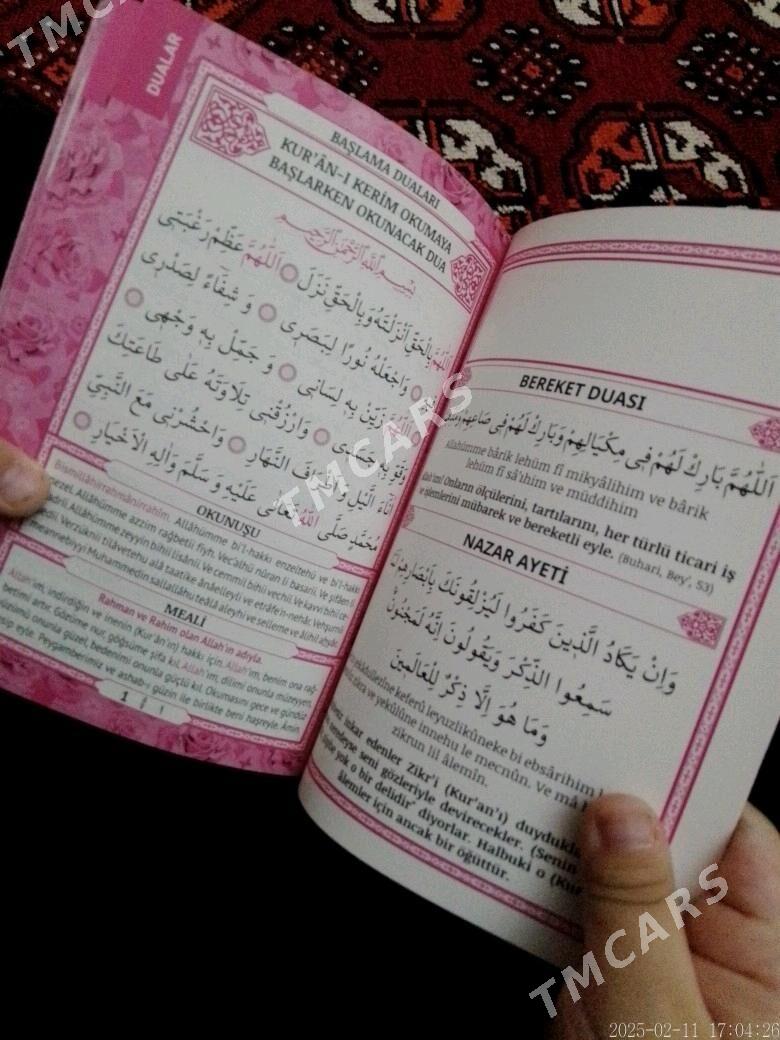 DUALAR
BAŞLAMA DUALARI
KUR'ÂN-I KERİM OKUMAYA
BAŞLARKEN OKUNACAK DUA
بِسْمِ اللّٰهِ الرَّحْمٰنِ الرَّحِيمِ
اَللّٰهُمَّ بِالْحَقِّ اَنْزَلْتَهُ وَبِالْحَقِّ نَزَلَ اَللّٰهُمَّ عَظِّمْ رَغْبَتِى
وَاجْعَلْهُ نُورًا لِبَصَرِى وَ شِفَٓاءً لِصَدْرِى
زَيِّنْ بِهِ لِسَانِى وَ جَمِّلْ بِهِ وَجْهِى
وَقَوِّ بِهِ جَسَدِى وَارْزُقْنِى تِلَاوَتَهُ عَلٰى طَاعَتِكَ
اٰنَاءَ الَّيْلِ وَاَطْرَافَ النَّهَارِ وَاحْشُرْنِى مَعَ النَّبِيِّ
مُحَمَّدٍ صَلَّى اللّٰهُ تَعَالٰى عَلَيْهِ وَ سَلَّمَ وَاٰلِهِ الْاَخْيَارِ
OKUNUŞU
Bismillâhirrahmânirrahîm. Allâhümme bi'l-hakkı enzeltehü ve bi'l-hakkı
nezel. Allâhümme azzim rağbetiî fiyh. Vec'alhü nûran li basarii. Ve şifâen li
sadrii. Allâhümme zeyyin bihii lisânii. Ve cemmil bihii vechii. Ve kavvi bihii ce-
sedii. Verzüknii tilâvetehu alâ taatike ânâelleyli ve etrâfe'n-nehâr. Vehşurnii
meannebiyyi Muhammedin sallallâhu teâlâ aleyhi ve selleme ve âlihil ahyâr.
MEALİ
Rahman ve Rahim olan Allah'ın adıyla.
Allah'ım, indirdiğin ve inenin (Kur'ân'ın) hakkı için. Allah'ım, benim ona rağ-
betimi artır. Gözüme nur, göğsüme şifa kıl. Allah'ım, dilimi onunla müzeyyen,
yüzümü onunla güzel, bedenimi onunla güçlü kıl. Okumasını gece ve gündüz
nasip eyle. Peygamberimiz ve ashab-ı güzin ile birlikte beni haşreyle. Âmin
1
BEREKET DUASI
اَللّٰهُمَّ بَارِكْ لَهُمْ فِى مِكْيَالِهِمْ وَبَارِكْ لَهُمْ فِى صَاعِهِمْ
Allahümme bârik lehüm fî mikyâlihim ve bârik
lehüm fî sâ'ıhim ve müddihim
Onların ölçülerini, tartılarını, her türlü ticari iş
ve işlemlerini mübarek ve bereketli eyle. (Buhari, Bey', 53)
NAZAR AYETİ
وَاِنْ يَكَادُ الَّذِينَ كَفَرُوا لَيُزْلِقُونَكَ بِاَبْصَارِهِمْ
سَمِعُوا الذِّكْرَ وَيَقُولُونَ اِنَّهُ لَمَجْنُونٌ
وَمَا هُوَ اِلَّا ذِكْرٌ لِلْعَالَمِينَ
keferû leyuzlikûneke bi ebsârihim
zikra ve yekûlûne innehu le mecnûn. Ve mâ
zikrun lil âlemîn.
inkar edenler Zikr'i (Kur'an'ı)
seni gözleriyle devirecekler. (Senin
yok o bir delidir" diyorlar. Halbuki o
âlemler için ancak bir öğüttür.
TMCARS
TMCARS
TMCARS
2025-02-11 17:04:26